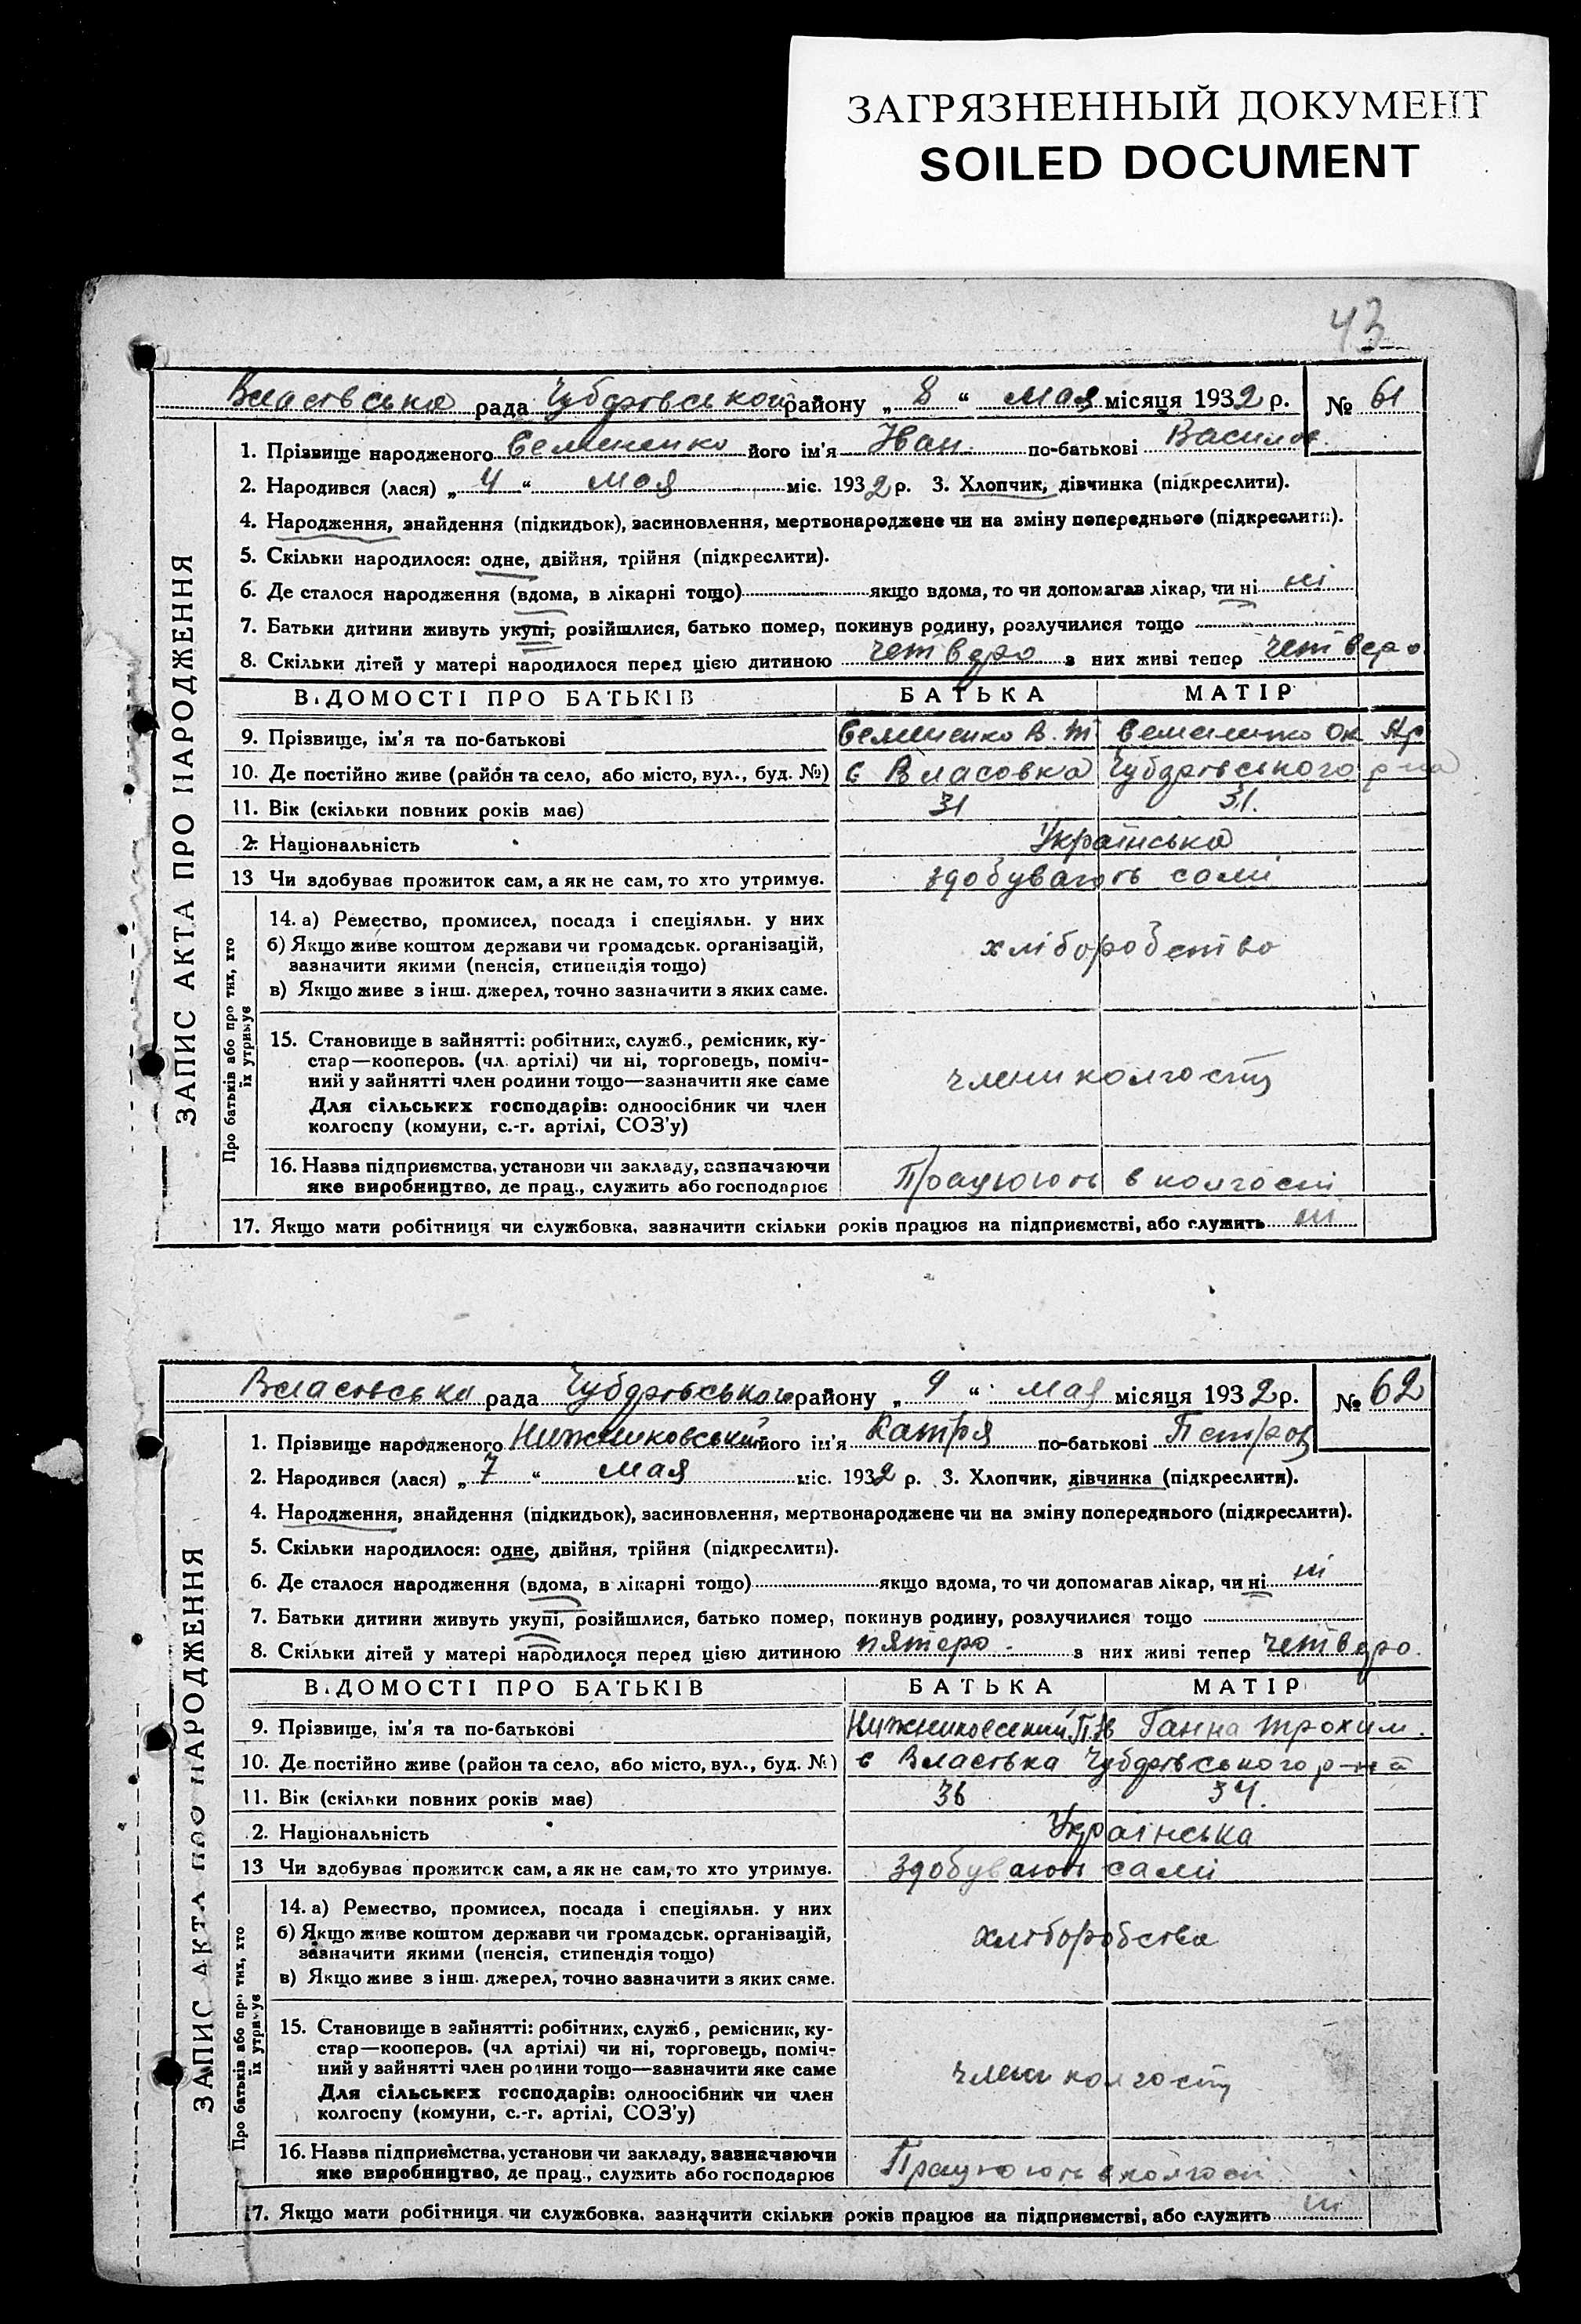 ЗАГРЯЗНЕННЫЙ ДОКУМЕНТ
SOILED DOCUMENT
43
рада району „ 8 “ мая місяця 1932 р. № 61
ЗАПИС АКТА ПРО НАРОДЖЕННЯ
1. Прізвище народженого Семененко його ім'я Іван по-батькові Василов.
2. Народився (лася) „ 4 “ мая міс. 1932 р. 3. Хлопчик, дівчинка (підкреслити).
4. Народження, знайдення (підкидьок), засиновлення, мертвонароджене чи на зміну попереднього (підкреслити).
5. Скільки народилося: одне, двійня, трійня (підкреслити).
6. Де сталося народження (вдома, в лікарні тощо) якщо вдома, то чи допомагав лікар, чи ні ні
7. Батьки дитини живуть укупі, розійшлися, батько помер, покинув родину, розлучилися тощо
8. Скільки дітей у матері народилося перед цією дитиною четверо з них живі тепер четверо
ВІДОМОСТІ ПРО БАТЬКІВ БАТЬКА МАТІР
9. Прізвище, ім'я та по-батькові Семененко В. Т. Семененко Ок Яр
10. Де постійно живе (район та село, або місто, вул., буд. №) с Власовка р-на
11. Вік (скільки повних років має) 31 31.
2. Національність Українська
13 Чи здобував прожиток сам, а як не сам, то хто утримує. здобувають самі
Про батьків або про тих, хто
їх утримує
14. а) Ремество, промисел, посада і спеціяльн. у них
б) Якщо живе коштом держави чи громадськ. організацій,
зазначити якими (пенсія, стипендія тощо)
хліборобство
в) Якщо живе з інш. джерел, точно зазначити з яких саме.
15. Становище в зайнятті: робітник, служб., ремісник, ку-
стар—кооперов. (чл. артілі) чи ні, торговець, поміч-
ний у зайнятті член родини тощо—зазначити яке саме
члени колгоспу
Для сільських господарів: одноосібник чи член
колгоспу (комуни, с.-г. артілі, СОЗ'у)
16. Назва підприємства, установи чи закладу, зазначаючи
яке виробництво, де прац., служить або господарює
Працюють в колгоспі
17. Якщо мати робітниця чи службовка, зазначити скільки років працює на підприємстві, або служить ні
рада району „ 9 “ мая місяця 1932 р. № 62
ЗАПИС АКТА ПРО НАРОДЖЕННЯ
1. Прізвище народженого Нижниковський його ім'я Катря по-батькові Петров
2. Народився (лася) „ 7 “ мая міс. 1932 р. 3. Хлопчик, дівчинка (підкреслити).
4. Народження, знайдення (підкидьок), засиновлення, мертвонароджене чи на зміну попереднього (підкреслити).
5. Скільки народилося: одне, двійня, трійня (підкреслити).
6. Де сталося народження (вдома, в лікарні тощо) якщо вдома, то чи допомагав лікар, чи ні ні
7. Батьки дитини живуть укупі, розійшлися, батько помер, покинув родину, розлучилися тощо
8. Скільки дітей у матері народилося перед цією дитиною пятеро з них живі тепер четверо.
ВІДОМОСТІ ПРО БАТЬКІВ БАТЬКА МАТІР
9. Прізвище, ім'я та по-батькові Нижниковський Ганна Трохим.
10. Де постійно живе (район та село, або місто, вул., буд. №) с р-на
11. Вік (скільки повних років має) 36 34.
2. Національність Українська
13 Чи здобував прожиток сам, а як не сам, то хто утримує. здобувають самі
Про батьків або про тих, хто
їх утримує
14. а) Ремество, промисел, посада і спеціяльн. у них
б) Якщо живе коштом держави чи громадськ. організацій,
зазначити якими (пенсія, стипендія тощо)
хліборобства
в) Якщо живе з інш. джерел, точно зазначити з яких саме.
15. Становище в зайнятті: робітник, служб., ремісник, ку-
стар—кооперов. (чл артілі) чи ні, торговець, поміч-
ний у зайнятті член родини тощо—зазначити яке саме
члени колгоспу
Для сільських господарів: одноосібник чи член
колгоспу (комуни, с.-г. артілі, СОЗ'у)
16. Назва підприємства, установи чи закладу, зазначаючи
яке виробництво, де прац., служить або господарює
Працюють в колгоспі
17. Якщо мати робітниця чи службовка, зазначити скільки років працює на підприємстві, або служить ні